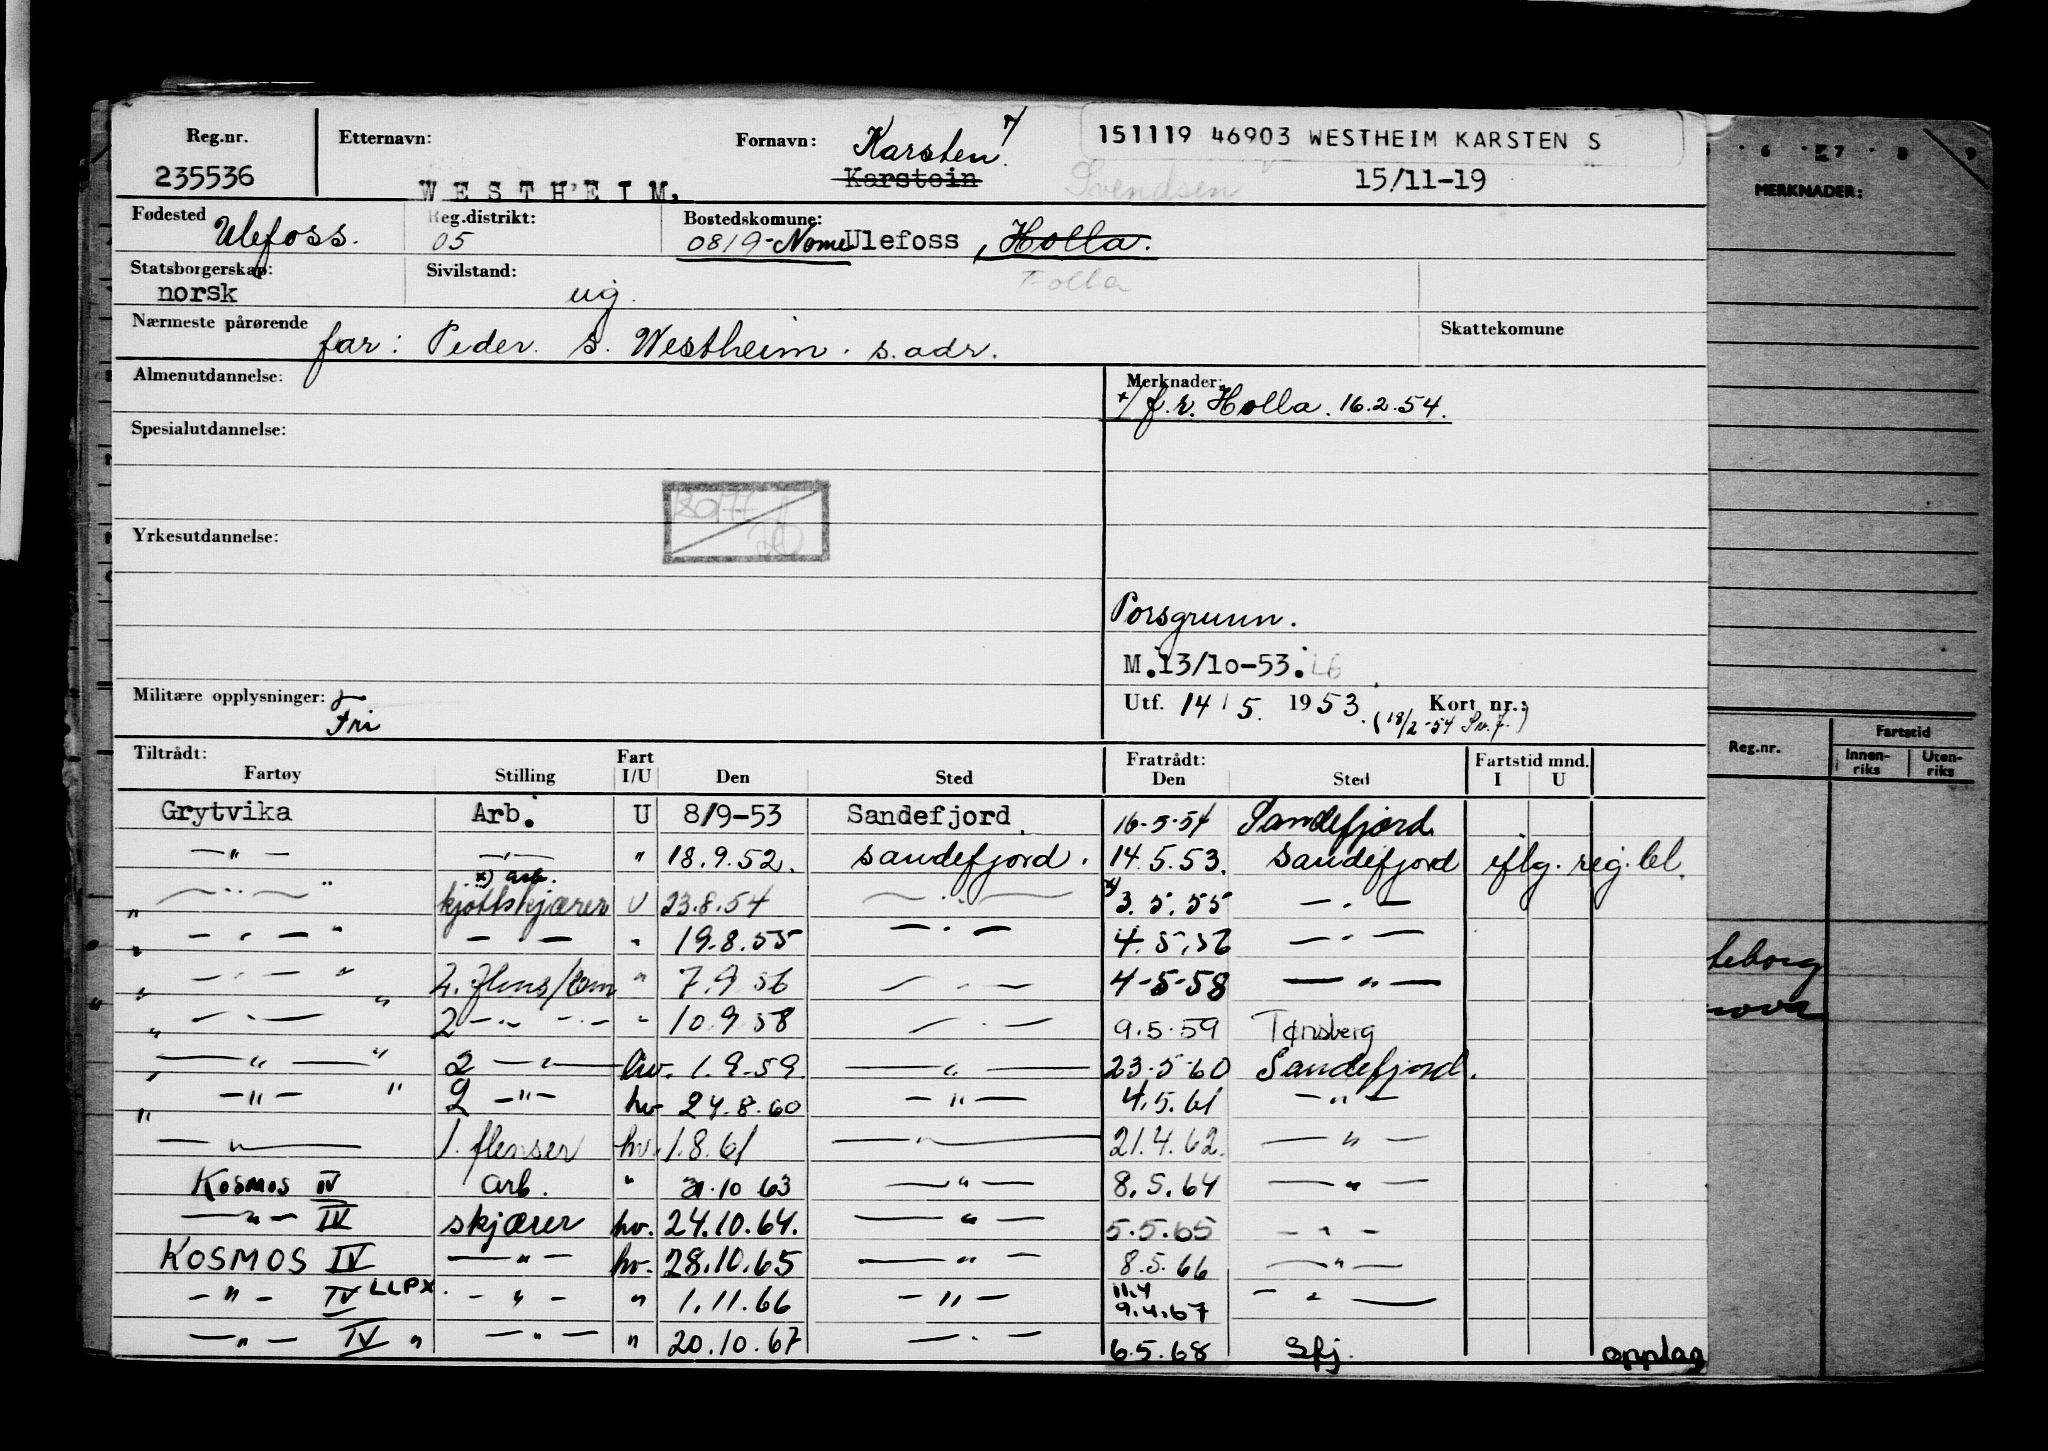 Reg.nr. Etternavn: Fornavn: Karsten x/ 151119 46903 WESTHEIM KARSTEN S
235536 WESTHEIM, Karstein Svendsen 15/11-19
Fødested Ulefoss. Reg.distrikt: 05 Bostedskomune: 0819-Nome Ulefoss, Holla.
Statsborgerskap: norsk Sivilstand: ug. Folla
Nærmeste pårørende far: Peder S. Westheim. s.adr. Skattekomune
Almenutdannelse: Merknader:
x/ f.r. Holla. 16.2.54.
Spesialutdannelse:
Yrkesutdannelse:
Porsgrunn.
M.13/10-53.
Militære opplysninger: Fri Utf. 14/5. 1953. Kort nr.:
(18/2-54 Sv.F.)
Tiltrådt: Fart Fratrådt: Fartstid mnd.
Fartøy Stilling I/U Den Sted Den Sted I U
Grytvika Arb. U 8/9-53 Sandefjord 16-5-54 Sandefjord
—"— —"— " 18.9.52. Sandefjord. 14.5.53. Sandefjord iflg. reg. bl.
" —"— " x) arb. kjøttskjærer U 23.8.54 —"— x/ 3.5.55 —"—
" —"— " —"— " 19.8.55 —"— 4.5.56 —"—
" —"— " 2. flens/ " 7.9 56 —"— 4-5-58 —"—
" —"— " 2 —"— —"— " 10.9.58 —"— 9.5.59 Tønsberg
" —"— " 2 —"— hv. 1.9.59 —"— 23.5-60 Sandefjord.
" —"— " 2 —"— hv 24.8.60 —"— 4.5.61 —"—
—"— 1. flenser hv. 1.8.61 —"— 21.4.62. —"—
Kosmos IV arb. " 21.10 63 —"— 8.5.64 —"—
—"— IV skjærer hv. 24.10.64. —"— 5.5.65 —"—
KOSMOS IV —"— hv. 28.10.65 —"— 8.5.66 —"—
—"— IV LLPX. —"— " 1.11.66 —"— 11.4 9.4.67 —"—
—"— IV " —"— " 20.10.67 —"— 6.5.68 Sfj. opplag
6 7 8 9
MERKNADER:
Reg.nr. Fartstid
Innenriks Utenriks